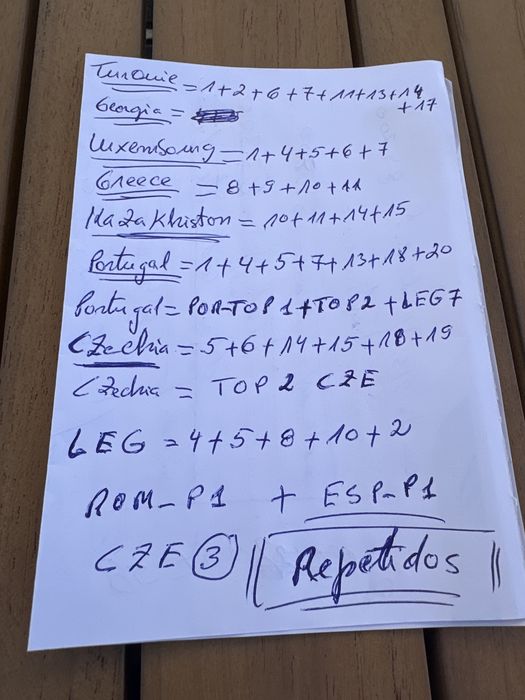 Turquie = 1+2+6+7+11+13+14
+17
Georgia =
Luxembourg = 1+4+5+6+7
Greece = 8+9+10+11
Kazakhiston = 10+11+14+15
Portugal = 1+4+5+7+13+18+20
Portugal = POR-TOP1+TOP2+LEG7
CZechia = 5+6+14+15+18+19
CZechia = TOP 2 CZE
LEG = 4+5+8+10+2
ROM-P1 + ESP-P1
CZE 3 || Repetidos ||